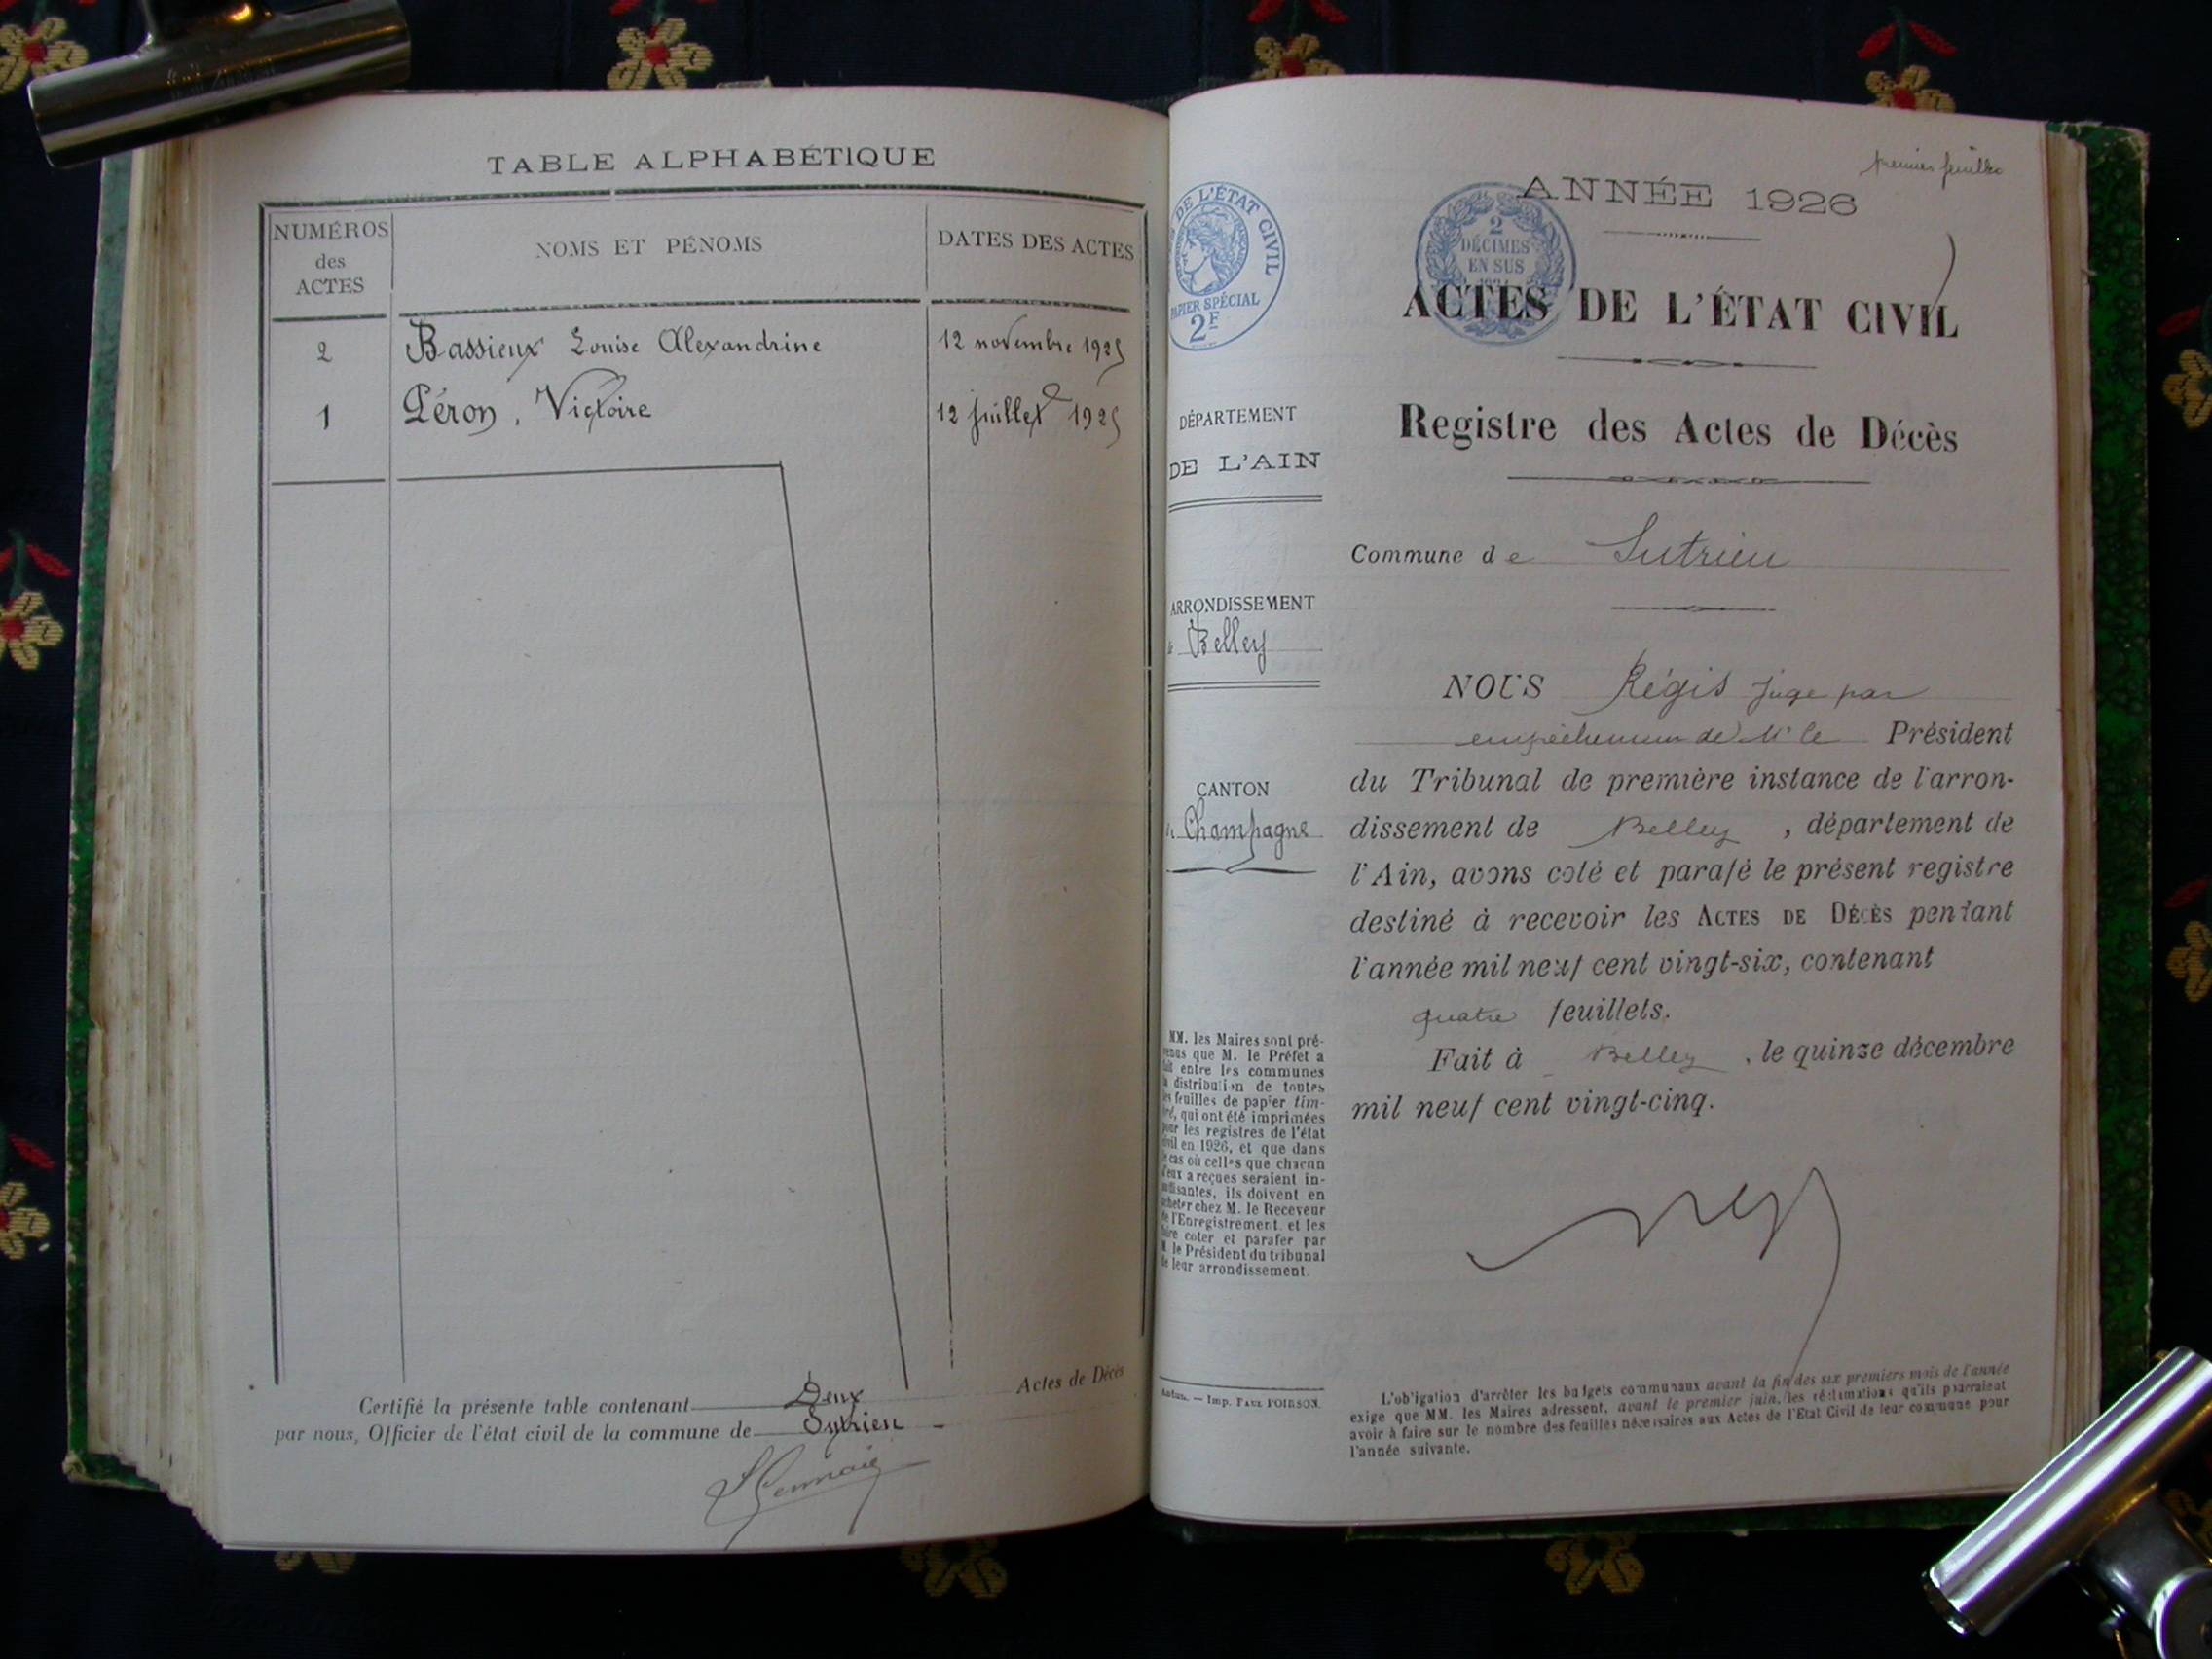 TABLE ALPHABÉTIQUE
NUMÉROS
des
ACTES
NOMS ET PÉNOMS
DATES DES ACTES
2 Bassieux Louise Alexandrine 12 novembre 1925
1 Péron, Victoire 12 juillet 1925
Certifié la présente table contenant Deux Actes de Décès
par nous, Officier de l'état civil de la commune de Sutrieu
premier feuillet
DE L'ÉTAT CIVIL
PAPIER SPÉCIAL
2F
2
DÉCIMES
EN SUS
ANNÉE 1926
ACTES DE L'ÉTAT CIVIL
Registre des Actes de Décès
Commune de Sutrieu
DÉPARTEMENT
DE L'AIN
ARRONDISSEMENT
de Belley
CANTON
de Champagne
NOUS Régis juge par
empêchement de Mr le Président
du Tribunal de première instance de l'arron-
dissement de Belley, département de
l'Ain, avons coté et parafé le présent registre
destiné à recevoir les ACTES DE DÉCÈS pendant
l'année mil neuf cent vingt-six, contenant
quatre feuillets.
Fait à Belley, le quinze décembre
mil neuf cent vingt-cinq.
MM. les Maires sont pré-
venus que M. le Préfet a
fait entre les communes
la distribution de toutes
les feuilles de papier tim-
bré, qui ont été imprimées
pour les registres de l'état
civil en 1926, et que dans
le cas où celles que chacun
d'eux a reçues seraient in-
suffisantes, ils doivent en
acheter chez M. le Receveur
de l'Enregistrement et les
faire coter et parafer par
M. le Président du tribunal
de leur arrondissement.
Imp. PAUL POIRSON.
L'obligation d'arrêter les budgets communaux avant la fin des six premiers mois de l'année
exige que MM. les Maires adressent, avant le premier juin, les réclamations qu'ils pourraient
avoir à faire sur le nombre des feuilles nécessaires aux Actes de l'Etat Civil de leur commune pour
l'année suivante.